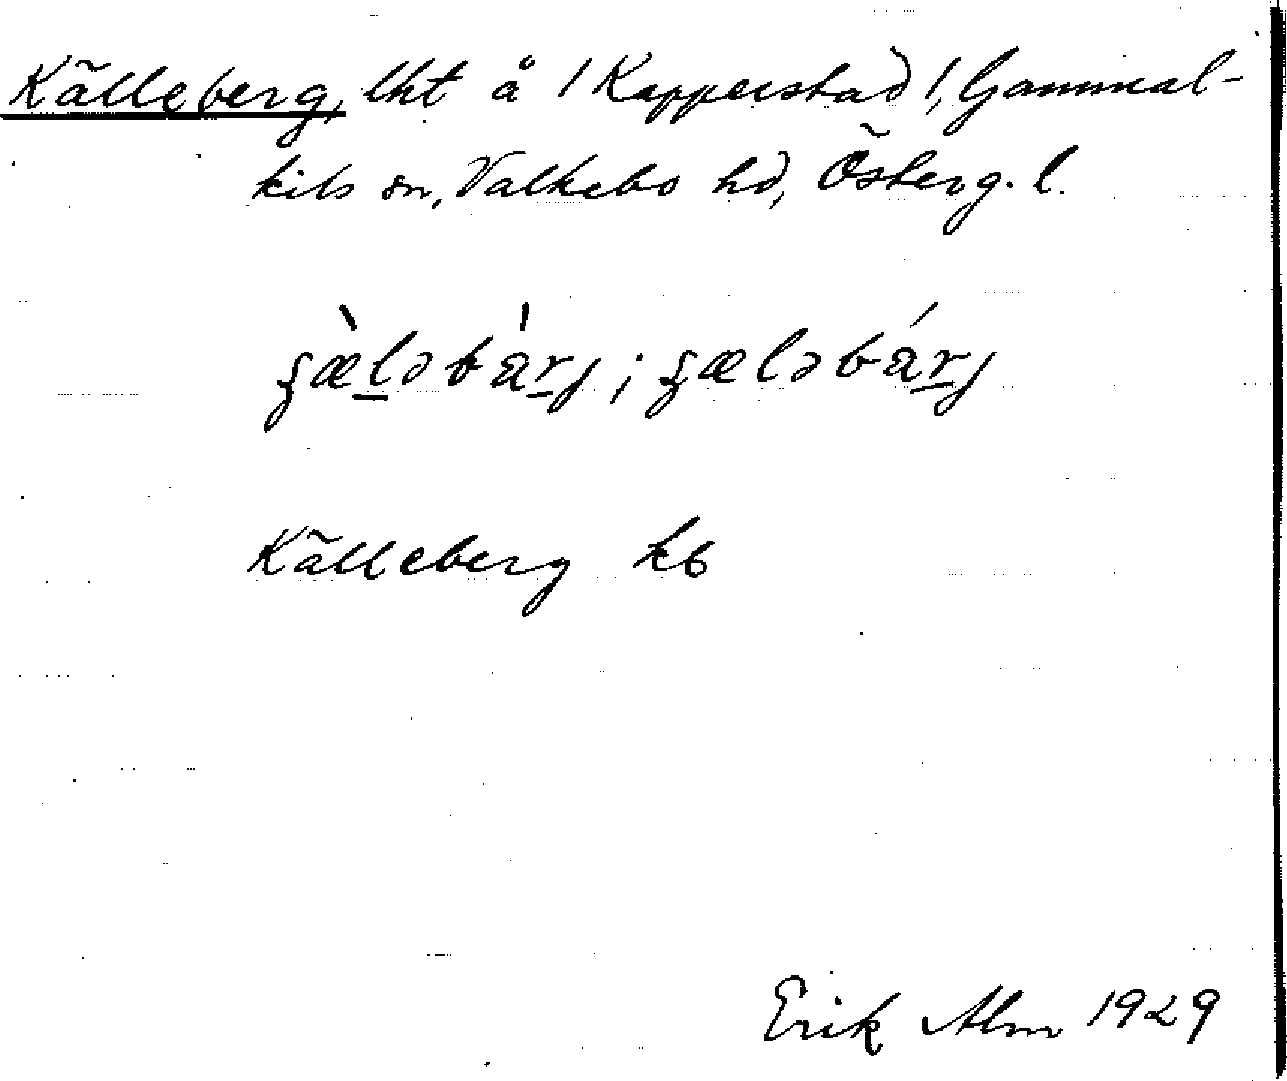 Källeberg, lht å / Kapperstad /, Gammal-
kils sn, Valkebo hd, Österg. l.
Källeberg kb
Erik Alm 1929